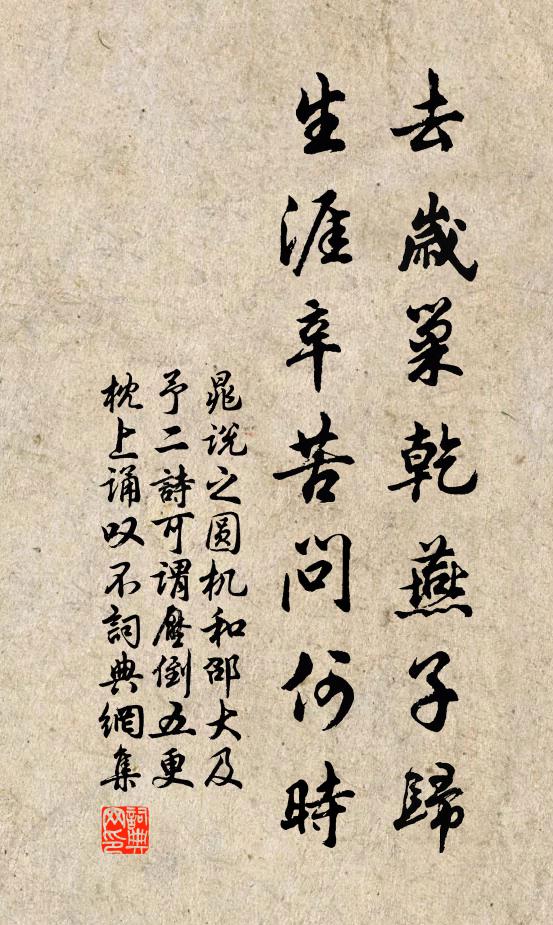 去歲巢乾燕子歸
生涯辛苦問何時
晁說之圆机和邵大及
予二詩可謂壓倒五更
枕上诵叹不詞典網集
詞典網印